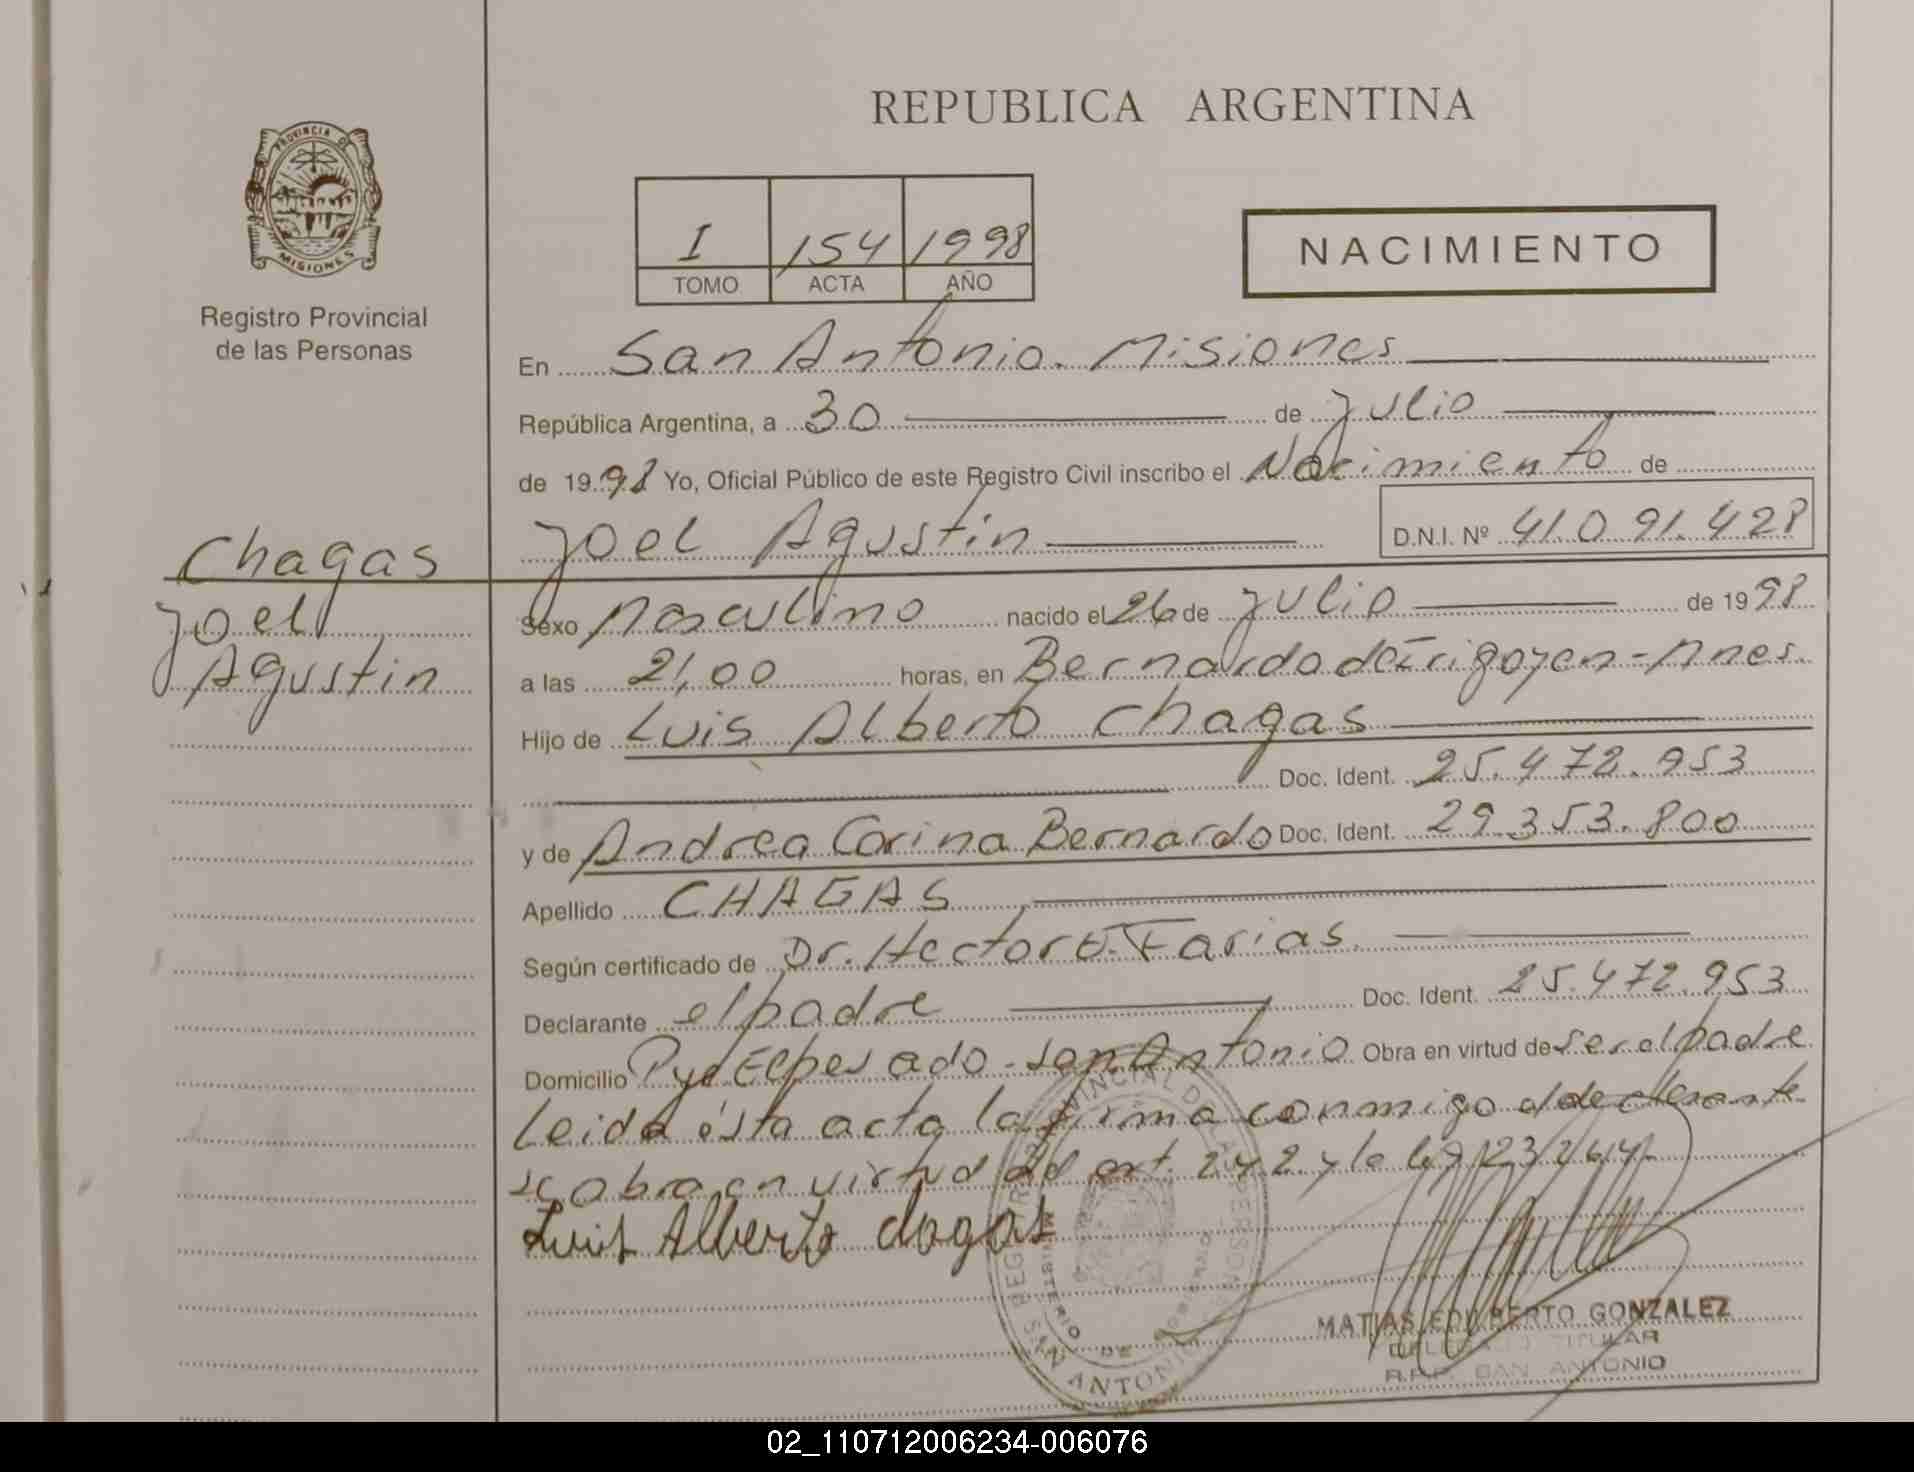 REPUBLICA ARGENTINA
PROVINCIA DE
MISIONES
Registro Provincial
de las Personas
I 154 1998
TOMO ACTA AÑO
NACIMIENTO
En San Antonio. Misiones
República Argentina, a 30 de Julio
de 1998 Yo, Oficial Público de este Registro Civil inscribo el Nacimiento de
Joel Agustin D.N.I. Nº 41.091.428
Chagas
Joel
Agustin
Sexo Masculino nacido el 26 de Julio de 1998
a las 21,00 horas, en Bernardo de Irigoyen - Mnes.
Hijo de Luis Alberto Chagas
Doc. Ident. 25.472.953
y de Andrea Corina Bernardo Doc. Ident. 29.353.800
Apellido CHAGAS
Según certificado de Dr. Hector E. Farias.
Declarante el padre Doc. Ident. 25.472.953
Domicilio Pje El pesado - San Antonio Obra en virtud de ser el padre
Leida ésta acta la firma conmigo el declarante
se obra en virtud del art. 242 y la ley 23264.
Luis Alberto chagas
REGISTRO PROVINCIAL DE LAS PERSONAS
MINISTERIO DE GOBIERNO
SAN ANTONIO
MATIAS EDILBERTO GONZALEZ
DELEGADO TITULAR
R.P.P. SAN ANTONIO
02_110712006234-006076